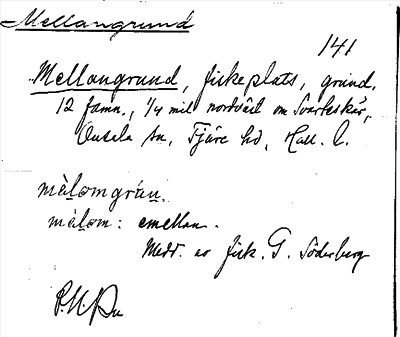 Mellangrund
141
Mellangrund, fiskeplats, grund,
12 famn., 1/4 mil nordväst om Svarteskär,
Onsala sn, Fjäre hd, Hall. l.
màlomgrùn.
màlom: emellan.
Medd. av fisk. G. Söderberg